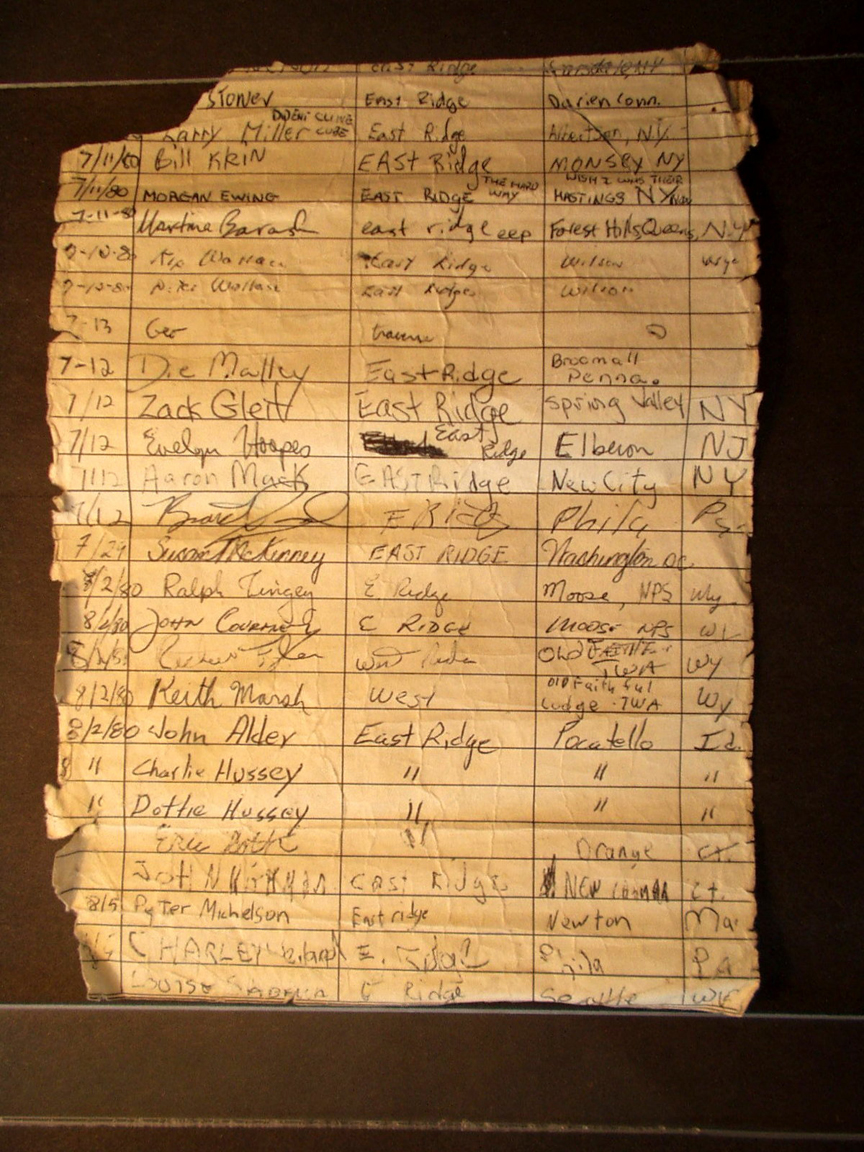 East Ridge
Stoner East Ridge Darien Conn.
Larry Miller East Ridge Albertson, N.Y.
7/11/80 Bill KRIN EAST Ridge MONSEY NY
7/11/80 MORGAN EWING EAST RIDGE THE HARD WAY HASTINGS NY
7-11-80 Martina Barash east ridge eep Forest Hills Queens, N.Y.
Wallace East Ridge Wilson Wyo
Wallace East Ridge Wilson
7-13 Geo traverse
7-12 Malley East Ridge Broomall Penna.
7/12 Zack Glent East Ridge Spring Valley NY
7/12 Evelyn Hoopes East Ridge Elberon NJ
7/12 Aaron Mack EAST Ridge New City NY
7/12 E Ridge Phila Pa.
7/29 Susan McKinney EAST RIDGE Washington DC
8/2/80 Ralph Tingey E Ridge Moose, NPS Wy.
8/2/80 John E RIDGE MOOSE NPS WY
Old TWA Wy
8/2/80 Keith Marsh West Old Faithful Lodge TWA Wy
8/2/80 John Alder East Ridge Pocatello Id.
8 " Charlie Hussey " " "
" Dottie Hussey " " "
Eric " Orange Ct.
JOHN East Ridge NEW Ct.
8/5 Peter Michelson East ridge Newton Ma.
CHARLEY E. Ridge Phila PA
LOUISE E Ridge Seattle